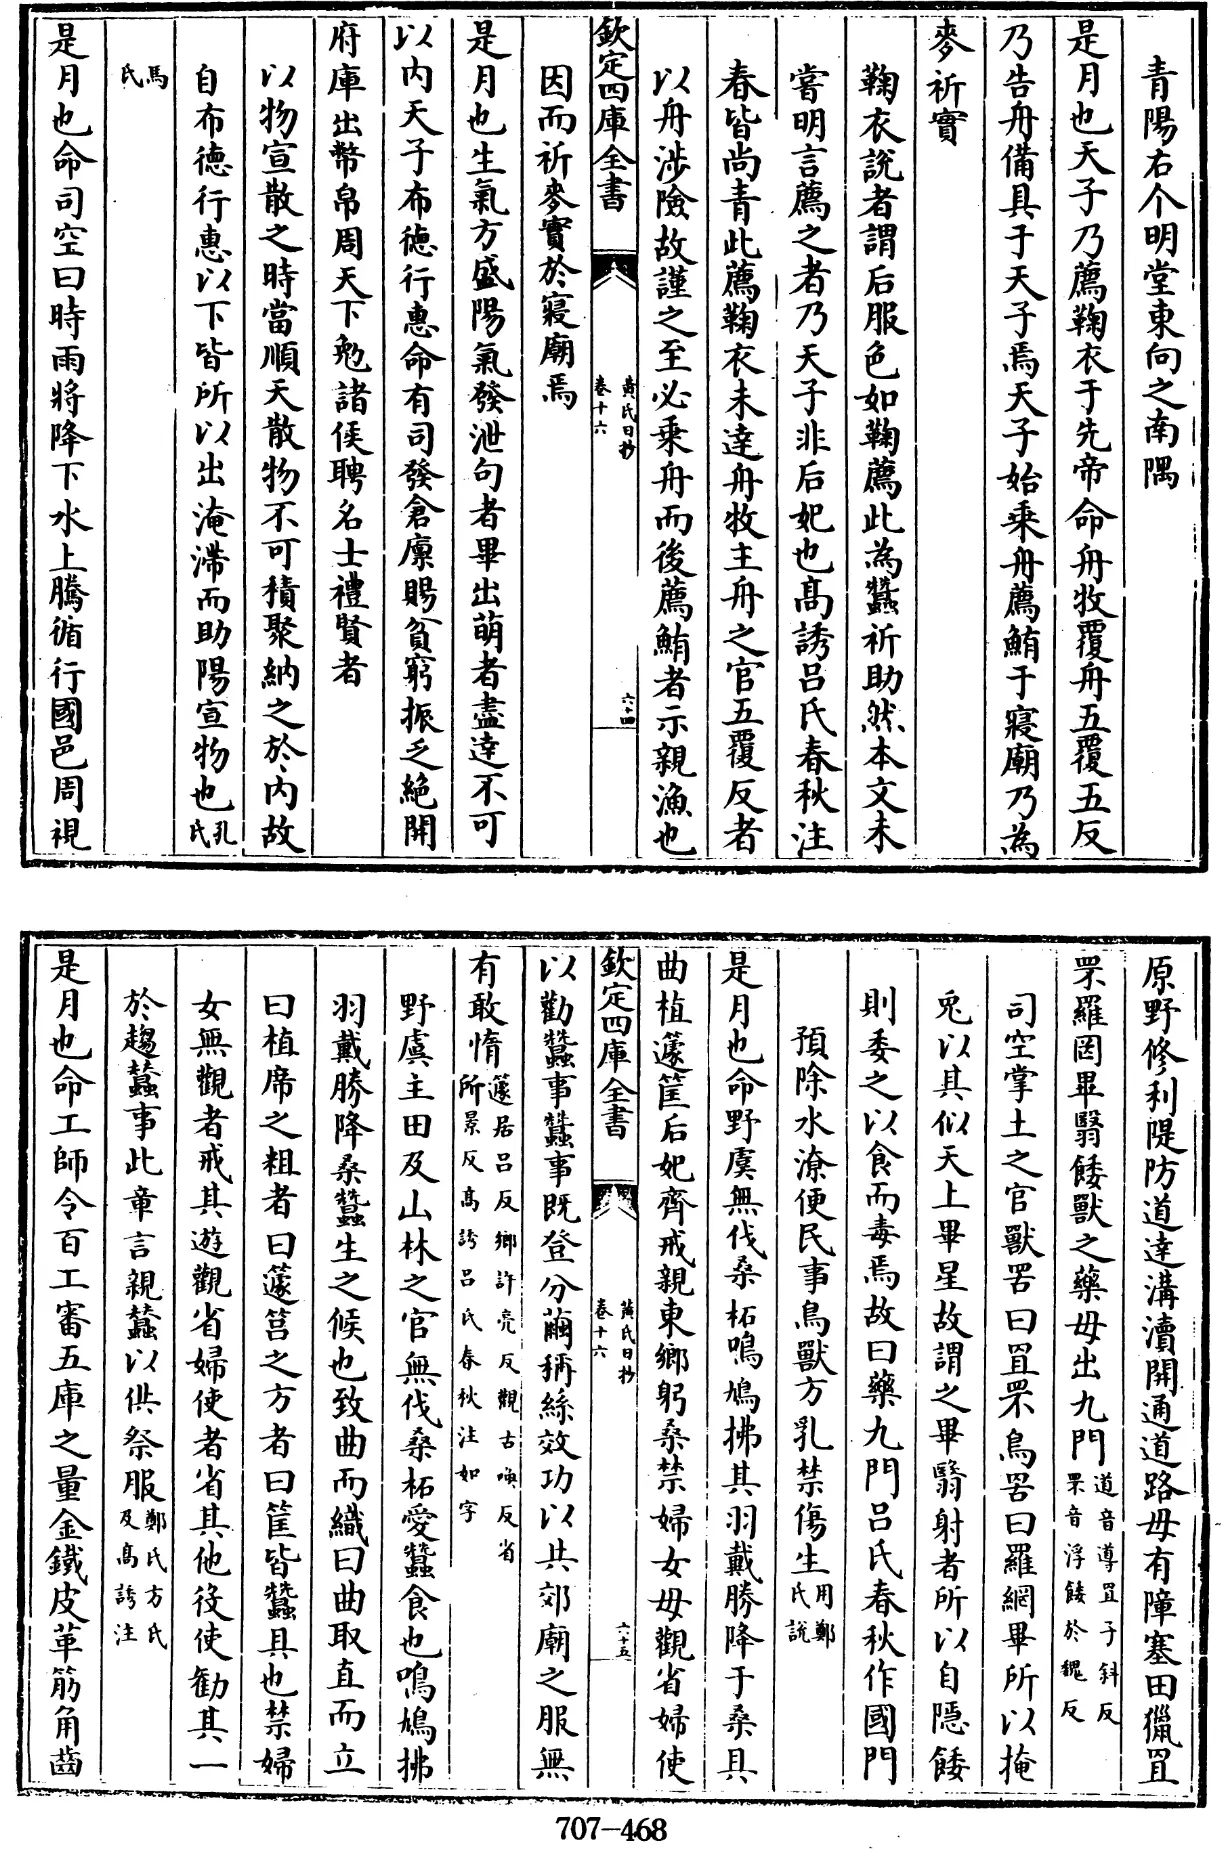 青陽右个明堂東向之南隅
是月也天子乃薦鞠衣于先帝命舟牧覆舟五覆五反
乃告舟備具于天子焉天子始乘舟薦鮪于寢廟乃為
麥祈實
鞠衣說者謂后服色如鞠薦此為蠶祈助然本文未
嘗明言薦之者乃天子非后妃也高誘呂氏春秋注
春皆尚青此薦鞠衣未達舟牧主舟之官五覆反者
以舟涉險故謹之至必乘舟而後薦鮪者示親漁也
欽定四庫全書
黃氏日抄
卷十六
六十四
因而祈麥實於寢廟焉
是月也生氣方盛陽氣發泄句者畢出萌者盡達不可
以内天子布德行惠命有司發倉廩賜貧窮振乏絶開
府庫出幣帛周天下勉諸侯聘名士禮賢者
以物宣散之時當順天散物不可積聚納之於内故
自布德行惠以下皆所以出淹滯而助陽宣物也孔氏
馬氏
是月也命司空曰時雨將降下水上騰循行國邑周視
原野修利隄防道達溝瀆開通道路毋有障塞田獵罝
罘羅罔畢翳餧獸之藥毋出九門道音導罝子斜反罘音浮餧於魏反
司空掌土之官獸罟曰罝罘鳥罟曰羅網畢所以掩
兎以其似天上畢星故謂之畢翳射者所以自隱餧
則委之以食而毒焉故曰藥九門呂氏春秋作國門
預除水潦便民事鳥獸方乳禁傷生用鄭氏說
是月也命野虞無伐桑柘鳴鳩拂其羽戴勝降于桑具
曲植籧筐后妃齊戒親東鄉躬桑禁婦女毋觀省婦使
欽定四庫全書
黃氏日抄
卷十六
六十五
以勸蠶事蠶事既登分繭稱絲效功以共郊廟之服無
有敢惰籧居呂反鄉許亮反觀古喚反省所景反高誘呂氏春秋注如字
野虞主田及山林之官無伐桑柘愛蠶食也鳴鳩拂
羽戴勝降桑蠶生之候也致曲而織曰曲取直而立
曰植席之粗者曰籧筥之方者曰筐皆蠶具也禁婦
女無觀者戒其遊觀省婦使者省其他役使勸其一
於趨蠶事此章言親蠶以供祭服鄭氏方氏及高誘注
是月也命工師令百工審五庫之量金鐵皮革筋角齒
707-468